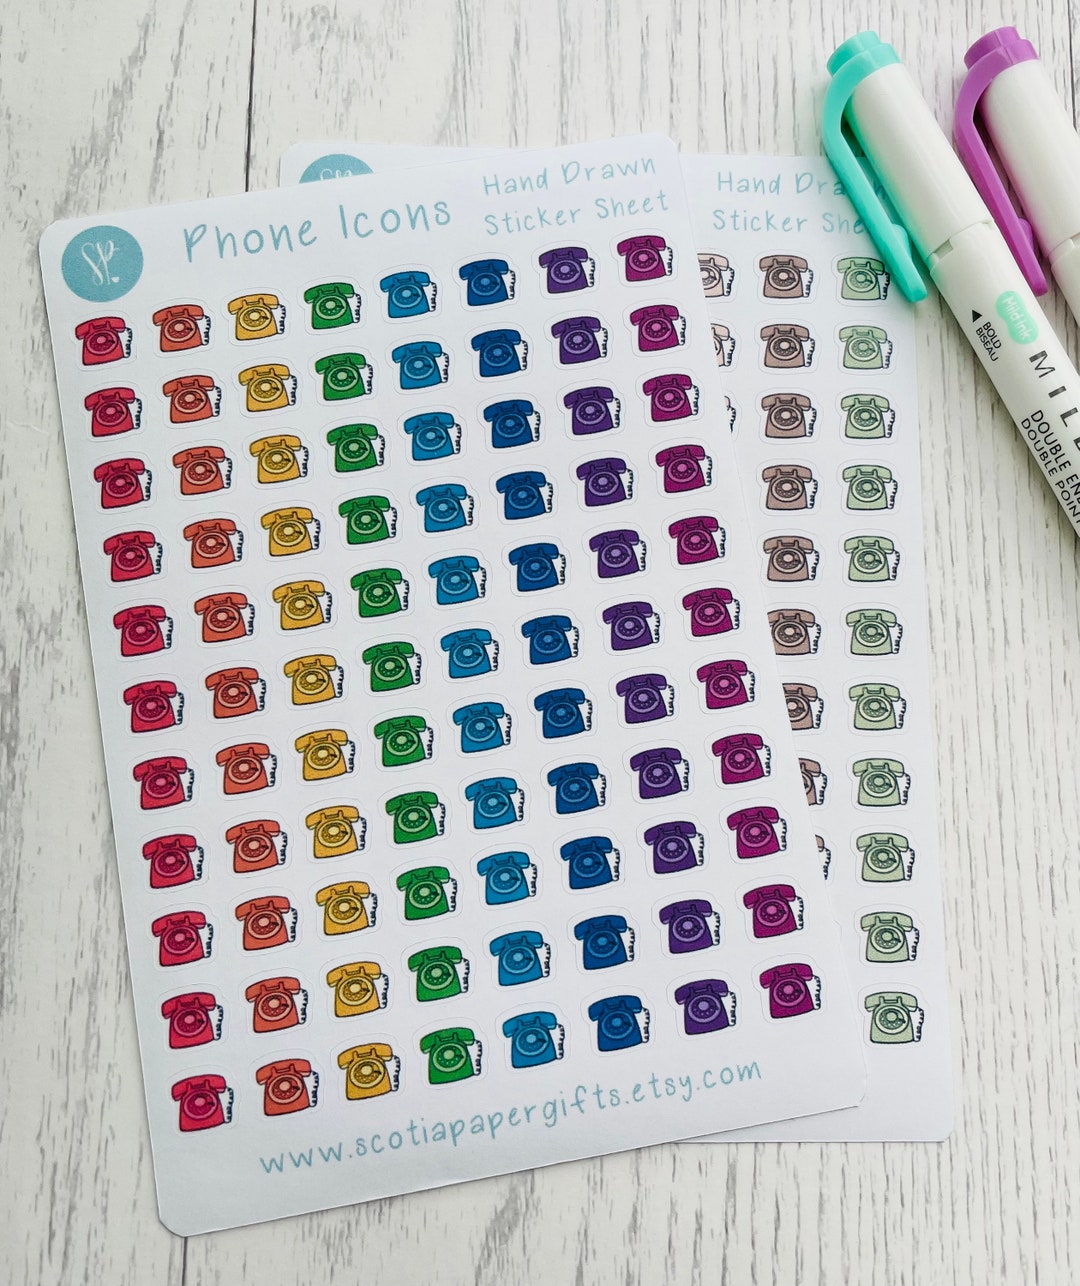 SP
Phone Icons
Hand Drawn
Sticker Sheet
www.scotiapapergifts.etsy.com
Hand Dra
Sticker Shee
Mild Ink
BOLD
BISEAU
MILD
DOUBLE EN
DOUBLE POIN